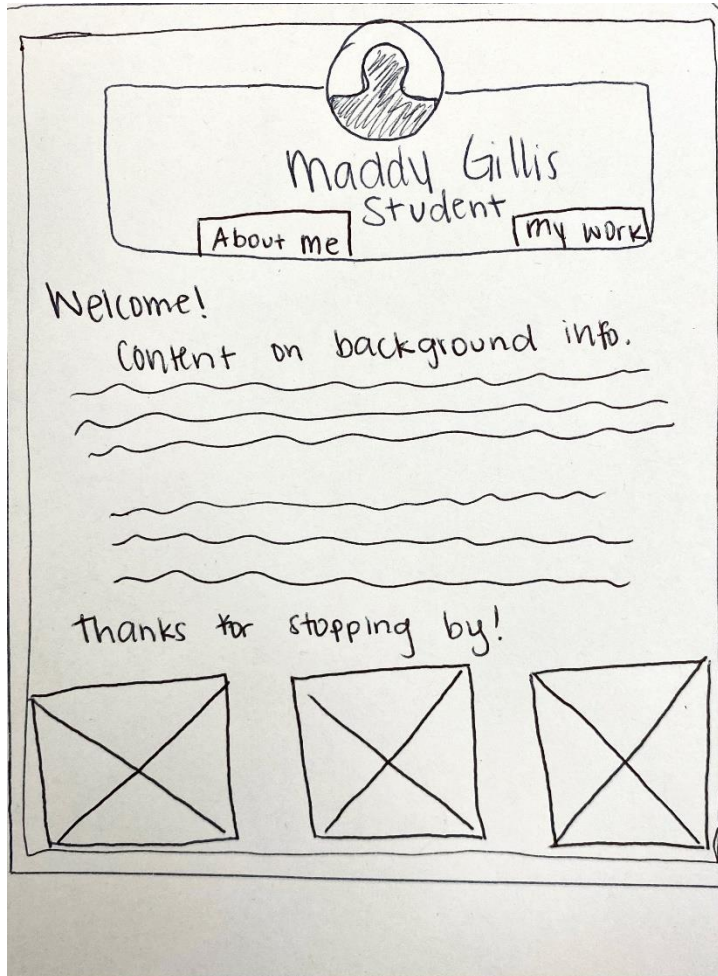 Maddy Gillis
Student
About me
My work
Welcome!
Content on background info.
Thanks for stopping by!